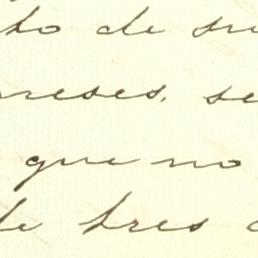 to de su
reses, se
que no
de tres